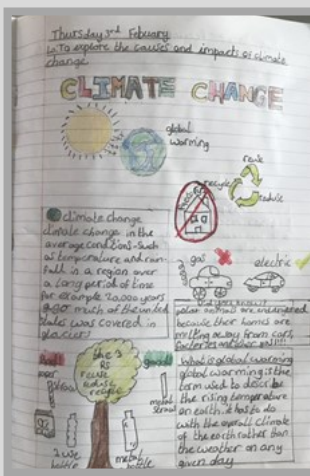 Thursday 3rd Febuary
L.o To explore the causes and impacts of climate
change
CLIMATE CHANGE
global
warming
reuse
recycle
reduse
gas
electric
climate change
climate change in the
average conditions-such
as temperature and rain-
fall in a region over
a long period of time
for example 20,000 years
ago much of the united
states was covered in
glaciers!
Did you know?
polar animals are endangered
because their homes are
melting away from cars,
factories
What is global warming
global warming is the
term used to describe
the rising temperature
on earth. it has to do
with the overall climate
of the earth rather than
the weather on any
given day.
bad
the 3
RS
reuse
reduse
recycle
good
metal
straw
bottle
metal
bottle